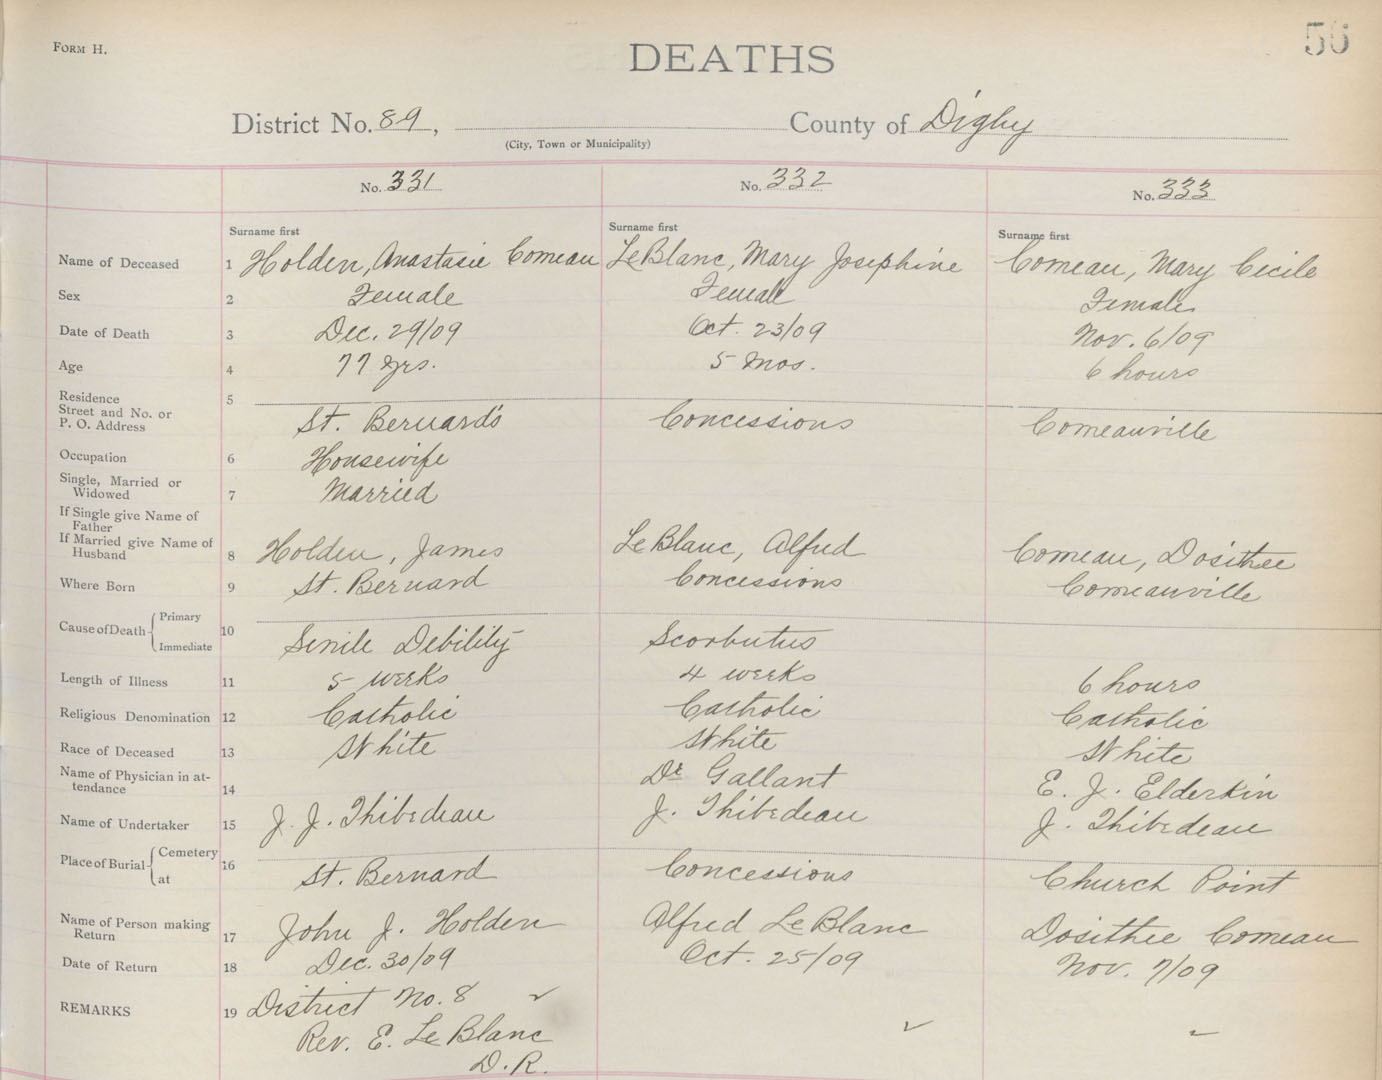 Form H.
56
DEATHS
District No. 89, County of Digby
(City, Town or Municipality)
No. 331 No. 332 No. 333
Surname first Surname first Surname first
Name of Deceased 1 Holden, Anastasie Comeau LeBlanc, Mary Josephine Comeau, Mary Cecile
Sex 2 Female Female Female
Date of Death 3 Dec. 29/09 Oct. 23/09 Nov. 6/09
Age 4 77 yrs. 5 mos. 6 hours
Residence 5
Street and No. or
P. O. Address St. Bernard's Concessions Comeauville
Occupation 6 Housewife
Single, Married or
Widowed 7 Married
If Single give Name of
Father
If Married give Name of
Husband 8 Holden, James LeBlanc, Alfred Comeau, Dosithee
Where Born 9 St. Bernard Concessions Comeauville
Cause of Death { Primary
Immediate 10 Senile Debility Scorbutus
Length of Illness 11 5 weeks 4 weeks 6 hours
Religious Denomination 12 Catholic Catholic Catholic
Race of Deceased 13 White White White
Name of Physician in at-
tendance 14 Dr Gallant E. J. Elderkin
Name of Undertaker 15 J. J. Thibedeau J. Thibedeau J. Thibedeau
Place of Burial { Cemetery 16
at St. Bernard Concessions Church Point
Name of Person making
Return 17 John J. Holden Alfred LeBlanc Dosithee Comeau
Date of Return 18 Dec. 30/09 Oct. 25/09 Nov. 7/09
REMARKS 19 District No. 8
Rev. E. LeBlanc
D.R.